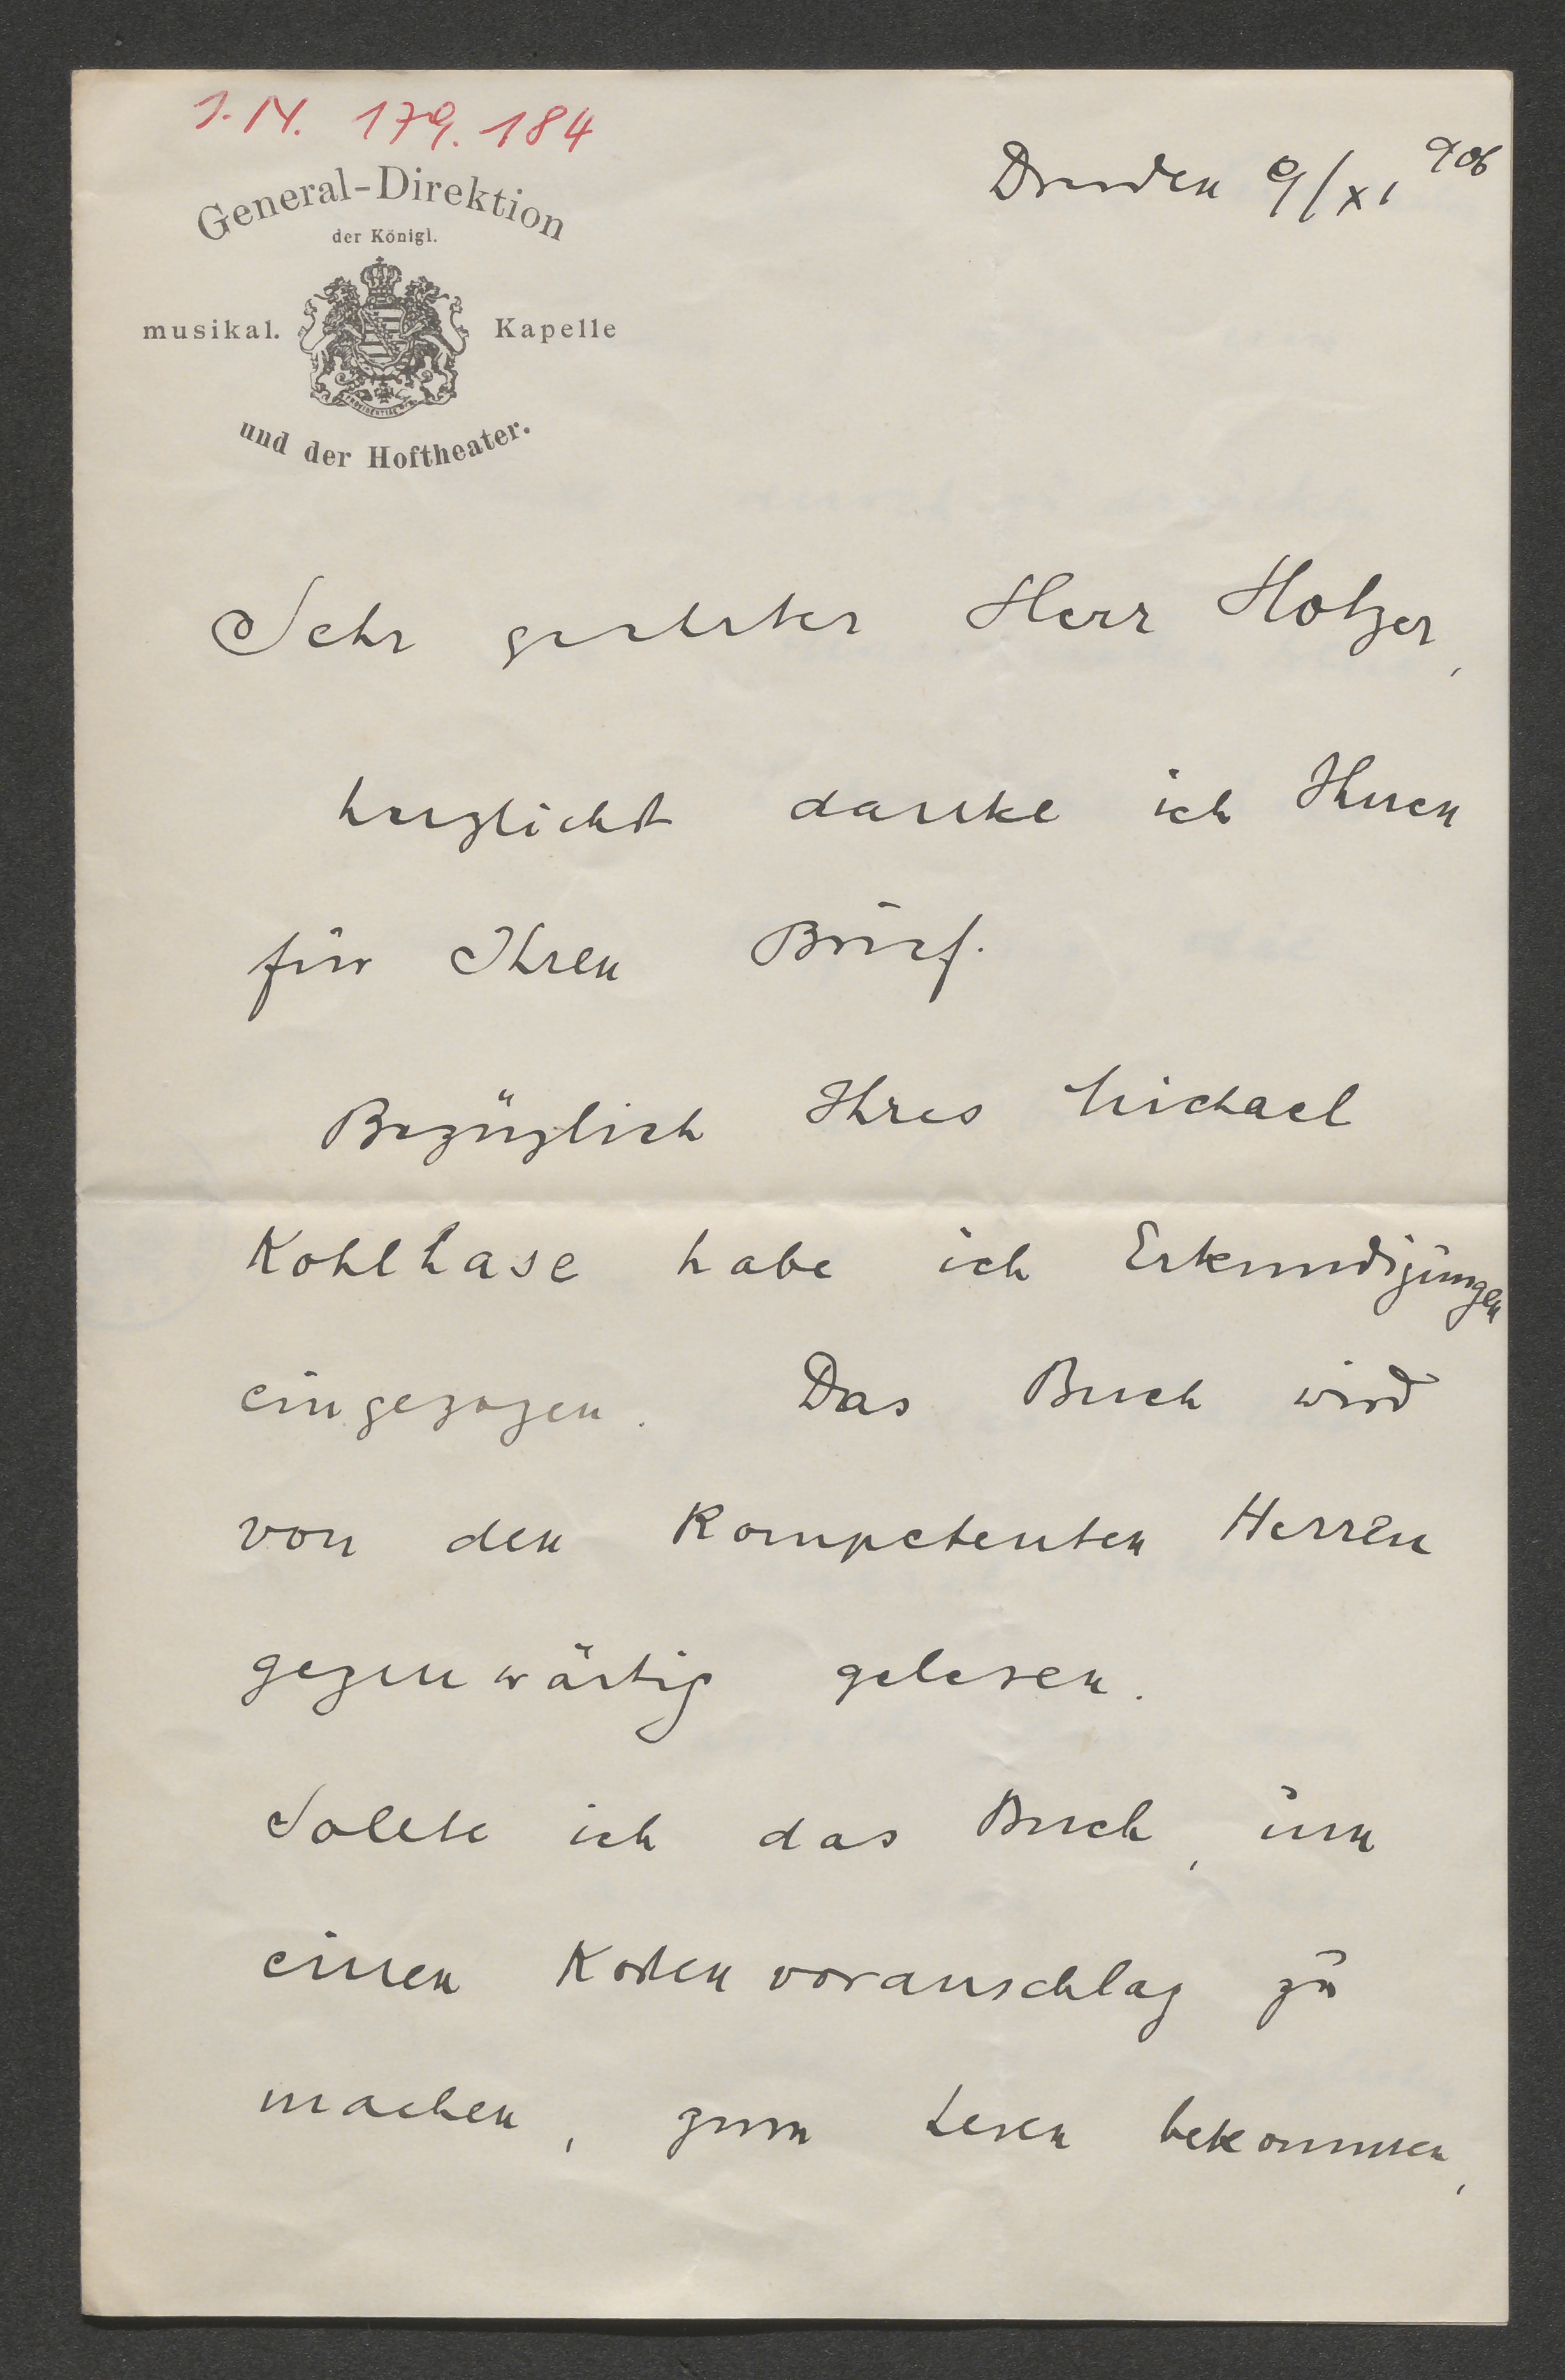 I. N. 179.184
General-Direktion
der Königl.
musikal. Kapelle
und der Hoftheater.
Dresden 9/XI 906
Sehr geehrter Herr Holzer,
herzlichst danke ich Ihnen
für Ihren Brief.
Bezüglich Ihres Michael
Kohlhase habe ich Erkundigungen
eingezogen. Das Buch wird
von den kompetenten Herren
gegenwärtig gelesen.
Sollte ich das Buch, um
einen Kostenvoranschlag zu
machen, zum Lesen bekommen,